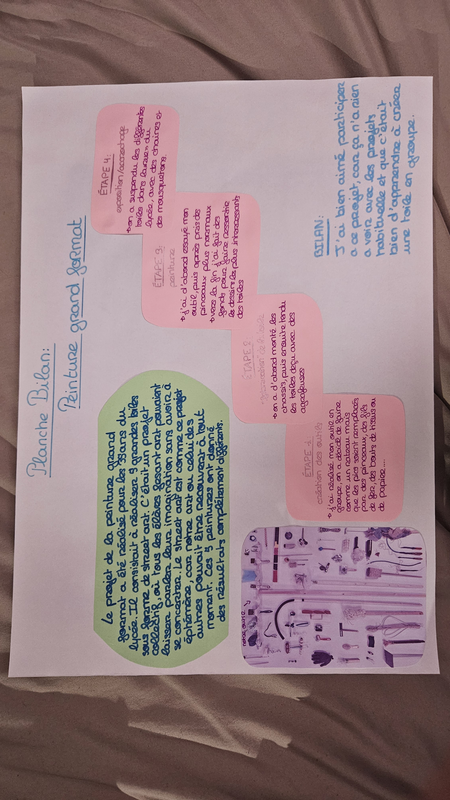 Planche Bilan:
Peinture grand format
Le projet de la peinture grand
format a été réalisé pour les 75ans du
lycée. Il consistait à réaliser 5 grandes toiles
sous forme de street art. C'était un projet
collectif, où tous les élèves faisant art peuvent
laisser parler leur imagination sans avoir à
se concentrer. Le street art est comme ce projet
éphémère, car notre art ou celui des
autres pouvait être recouvert à tout
moment. Ces 5 peintures ont donné
des résultats complètement différents.
ÉTAPE 1:
création des outils
→ j'ai réalisé mon outil en
groupe, on a décidé de faire
comme un rateau mais
que les pics soient remplacés
par des pinceaux, des fils
de fer, des bouts de tissus ou
de papier...
ÉTAPE 2
→ on a d'abord monté les
chassis, puis ensuite tendu
les toiles dessus avec des
agrafeuses
ÉTAPE 3:
peinture
→ j'ai d'abord essayé mon
outil, puis après pris des
pinceaux plus normaux
→ vers la fin j'ai fait des
fonds pour faire ressortir
les dessins les plus intéressants
des toiles
ÉTAPE 4:
exposition/accrochage
→ on a suspendu les différentes
toiles dans la rue du
lycée, avec des chaines et
des mousquetons.
BILAN:
J'ai bien aimé participer
a ce projet, car ça n'a rien
a voir avec les projets
habituelle et que c'était
bien d'apprendre à créer
une toile en groupe.